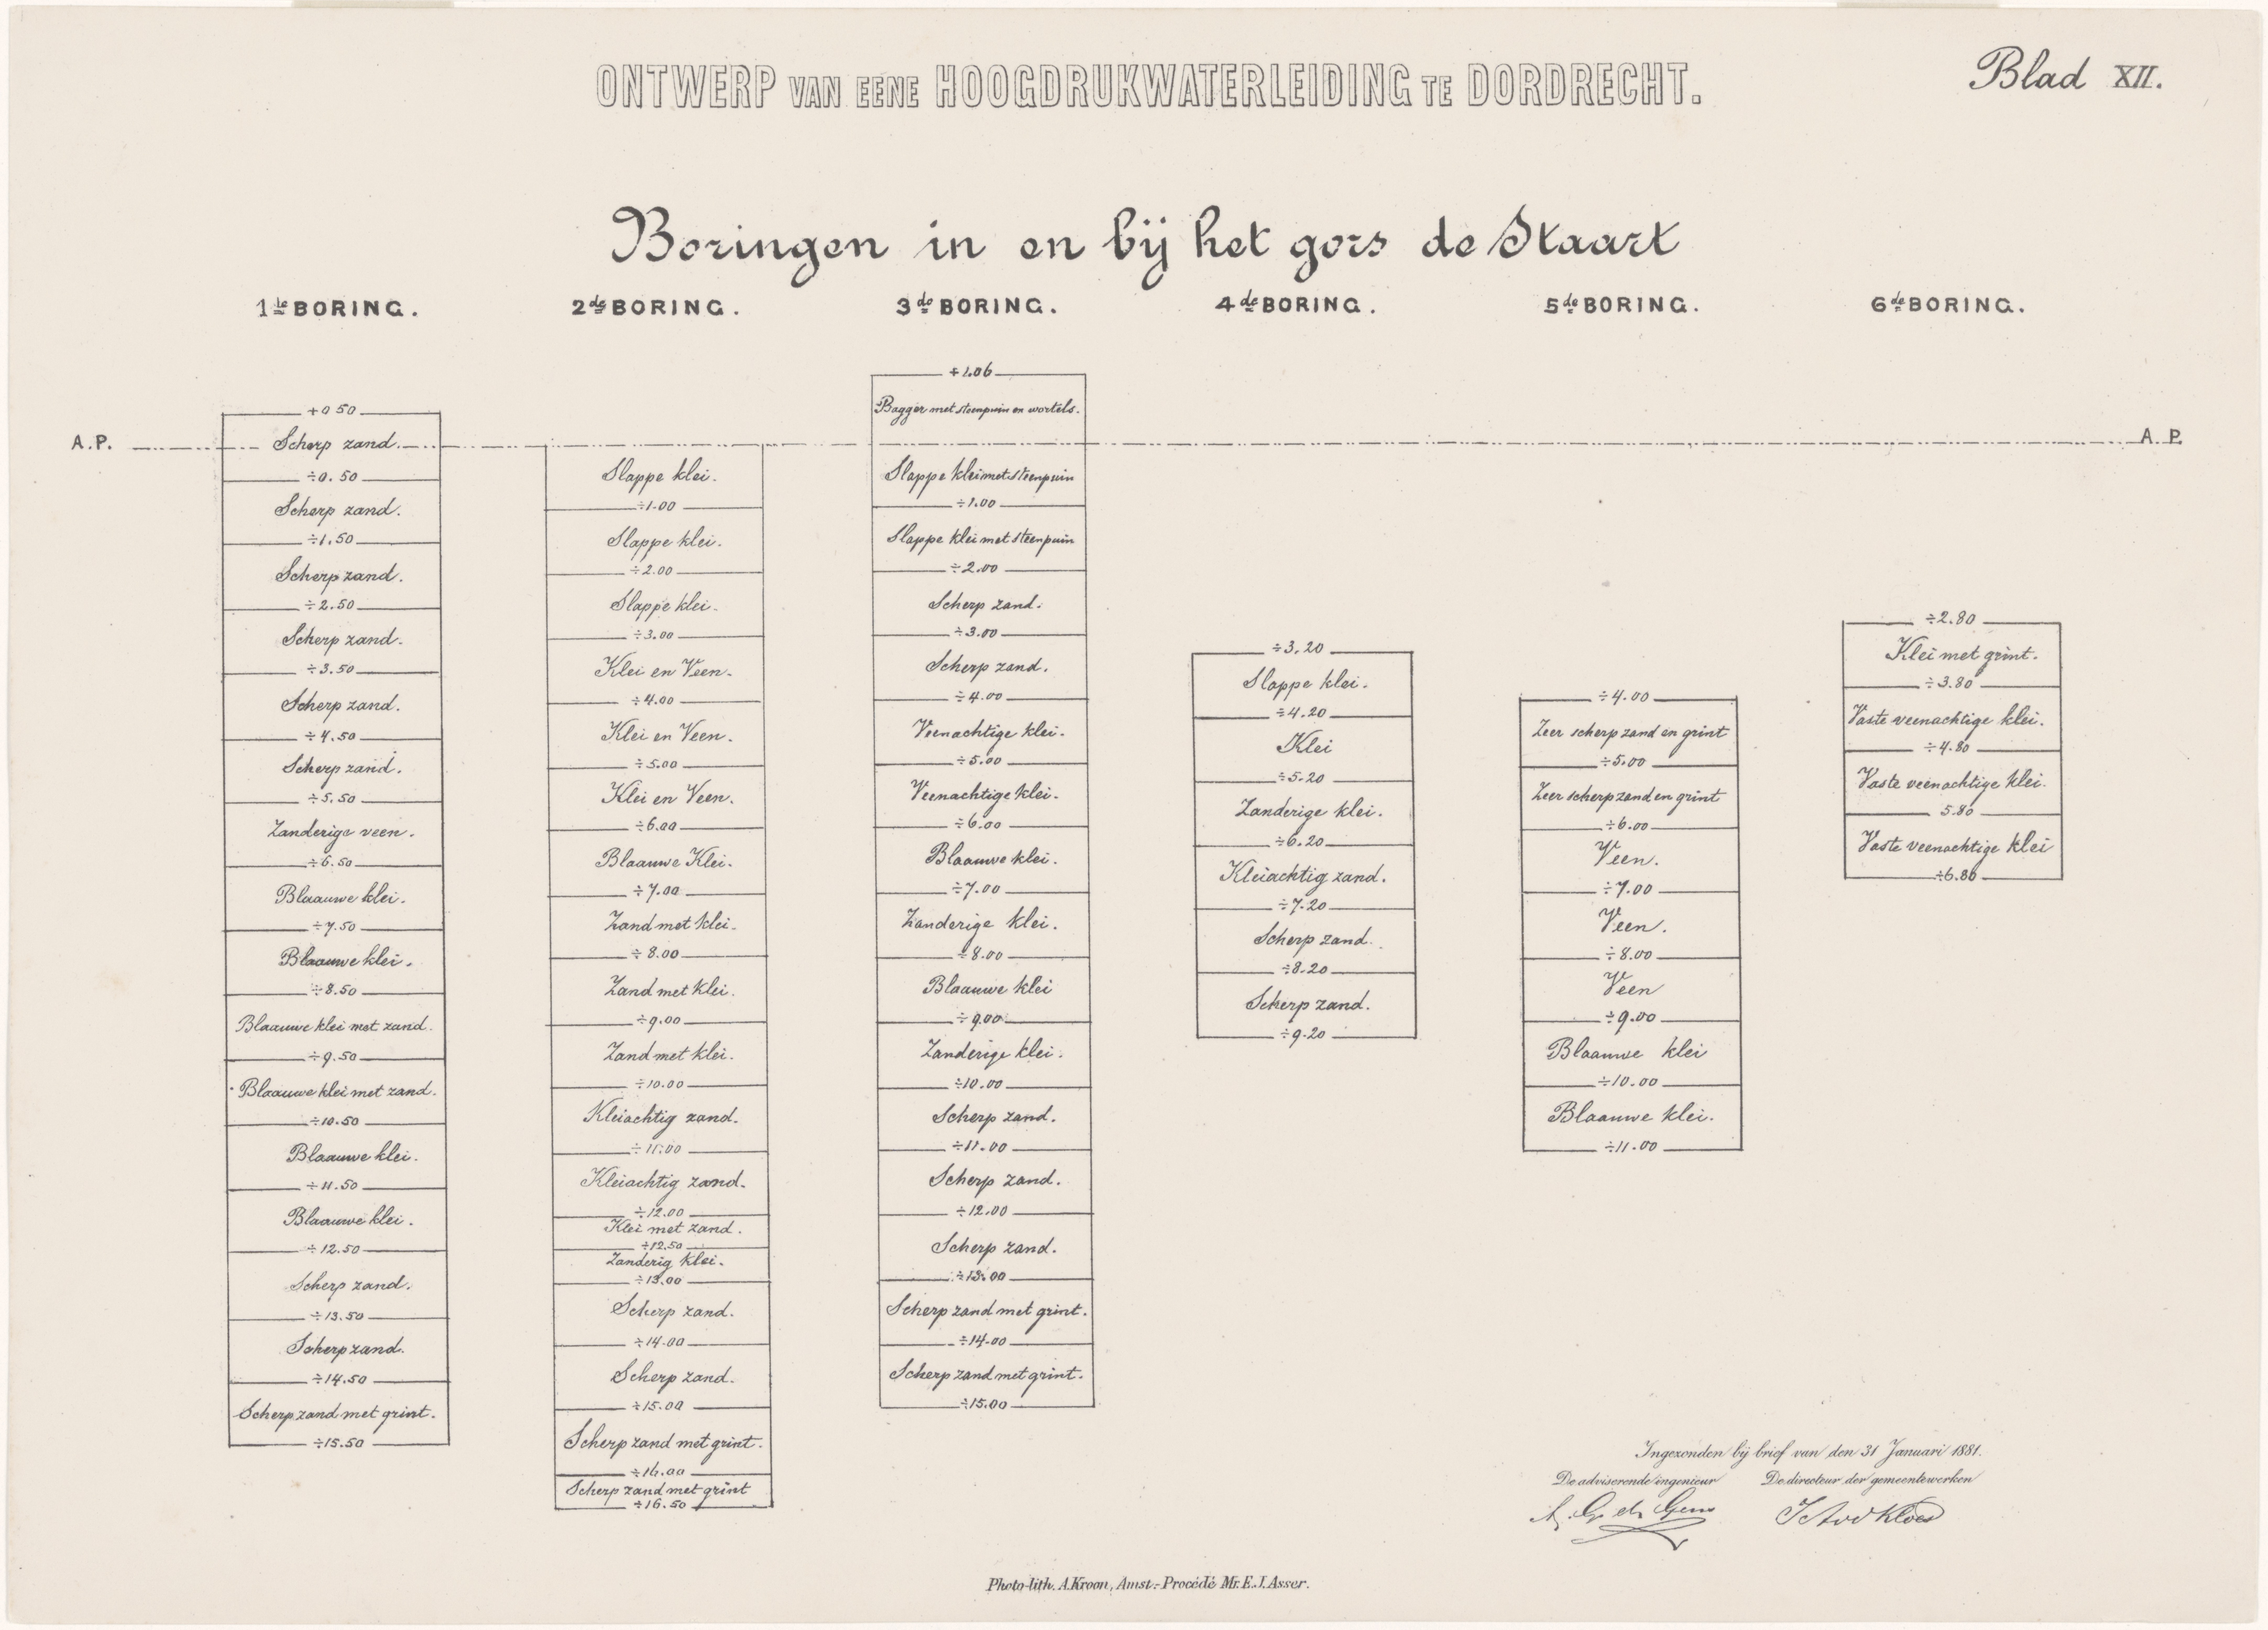 ONTWERP VAN EENE HOOGDRUKWATERLEIDING TE DORDRECHT.
Blad XII.
Boringen in en bij het gors de Staart
1ste BORING.
+0 50
A.P.
Scherp zand.
÷0.50
Scherp zand.
÷1.50
Scherp zand.
÷2.50
Scherp zand.
÷3.50
Scherp zand.
÷4.50
Scherp zand.
÷5.50
Zanderige veen.
÷6.50
Blaauwe klei.
÷7.50
Blaauwe klei.
÷8.50
Blaauwe klei met zand.
÷9.50
Blaauwe klei met zand.
÷10.50
Blaauwe klei.
÷11.50
Blaauwe klei.
÷12.50
Scherp zand.
÷13.50
Scherp zand.
÷14.50
Scherp zand met grint.
÷15.50
2de BORING.
Slappe klei.
÷1.00
Slappe klei.
÷2.00
Slappe klei.
÷3.00
Klei en Veen.
÷4.00
Klei en Veen.
÷5.00
Klei en Veen.
÷6.00
Blaauwe Klei.
÷7.00
Zand met klei.
÷8.00
Zand met klei.
÷9.00
Zand met klei.
÷10.00
Kleiachtig zand.
÷11.00
Kleiachtig zand.
÷12.00
Klei met zand.
÷12.50
Zanderig klei.
÷13.00
Scherp zand.
÷14.00
Scherp zand.
÷15.00
Scherp zand met grint.
÷16.00
Scherp zand met grint
÷16.50
3de BORING.
+1.06
Bagger met steenpuin en wortels.
Slappe klei met steenpuin
÷1.00
Slappe klei met steenpuin
÷2.00
Scherp zand.
÷3.00
Scherp zand.
÷4.00
Veenachtige klei.
÷5.00
Veenachtige klei.
÷6.00
Blaauwe klei.
÷7.00
Zanderige klei.
÷8.00
Blaauwe klei
÷9.00
Zanderige klei.
÷10.00
Scherp zand.
÷11.00
Scherp zand.
÷12.00
Scherp zand.
÷13.00
Scherp zand met grint.
÷14.00
Scherp zand met grint.
÷15.00
4de BORING.
÷3.20
Slappe klei.
÷4.20
Klei
÷5.20
Zanderige klei.
÷6.20
Kleiachtig zand.
÷7.20
Scherp zand.
÷8.20
Scherp zand.
÷9.20
5de BORING.
÷4.00
Zeer scherp zand en grint
÷5.00
Zeer scherp zand en grint
÷6.00
Veen.
÷7.00
Veen.
÷8.00
Veen
÷9.00
Blaauwe klei
÷10.00
Blaauwe klei.
÷11.00
6de BORING.
A.P.
÷2.80
Klei met grint.
÷3.80
Vaste veenachtige klei.
÷4.80
Vaste veenachtige klei.
5.80
Vaste veenachtige klei
÷6.80
Ingezonden bij brief van den 31 Januari 1881.
De adviserende ingenieur De directeur der gemeentewerken
Photo-lith. A. Kroon, Amst.- Procédé Mr. E.J. Asser.